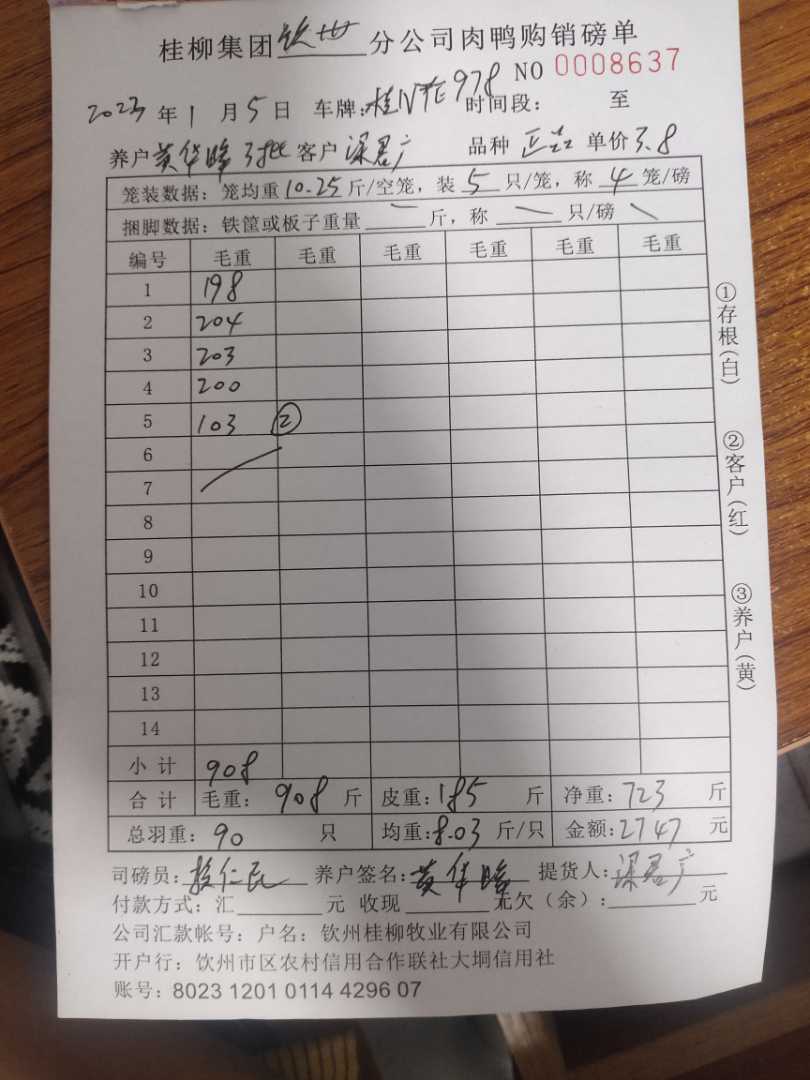 桂柳集团钦州分公司肉鸭购销磅单
NO 0008637
2023年1月5日 车牌:桂N 978 时间段: 至
养户 黄华峰 客户 梁君广 品种 单价3.8
笼装数据:笼均重10.25斤/空笼,装5只/笼,称4笼/磅
捆脚数据:铁筐或板子重量 — 斤,称 \ 只/磅 \
编号 毛重 毛重 毛重 毛重 毛重 毛重
1 198
2 204
3 203
4 200
5 103 ②
6
7
8
9
10
11
12
13
14
小计 908
合计 毛重:908斤 皮重:185斤 净重:723斤
总羽重:90只 均重:8.03斤/只 金额:2747元
司磅员: 仁民 养户签名:黄华峰 提货人:梁君广
付款方式:汇 元 收现 元欠(余): 元
公司汇款帐号:户名:钦州桂柳牧业有限公司
开户行:钦州市区农村信用合作联社大垌信用社
账号:8023 1201 0114 4296 07
①存根(白)
②客户(红)
③养户(黄)